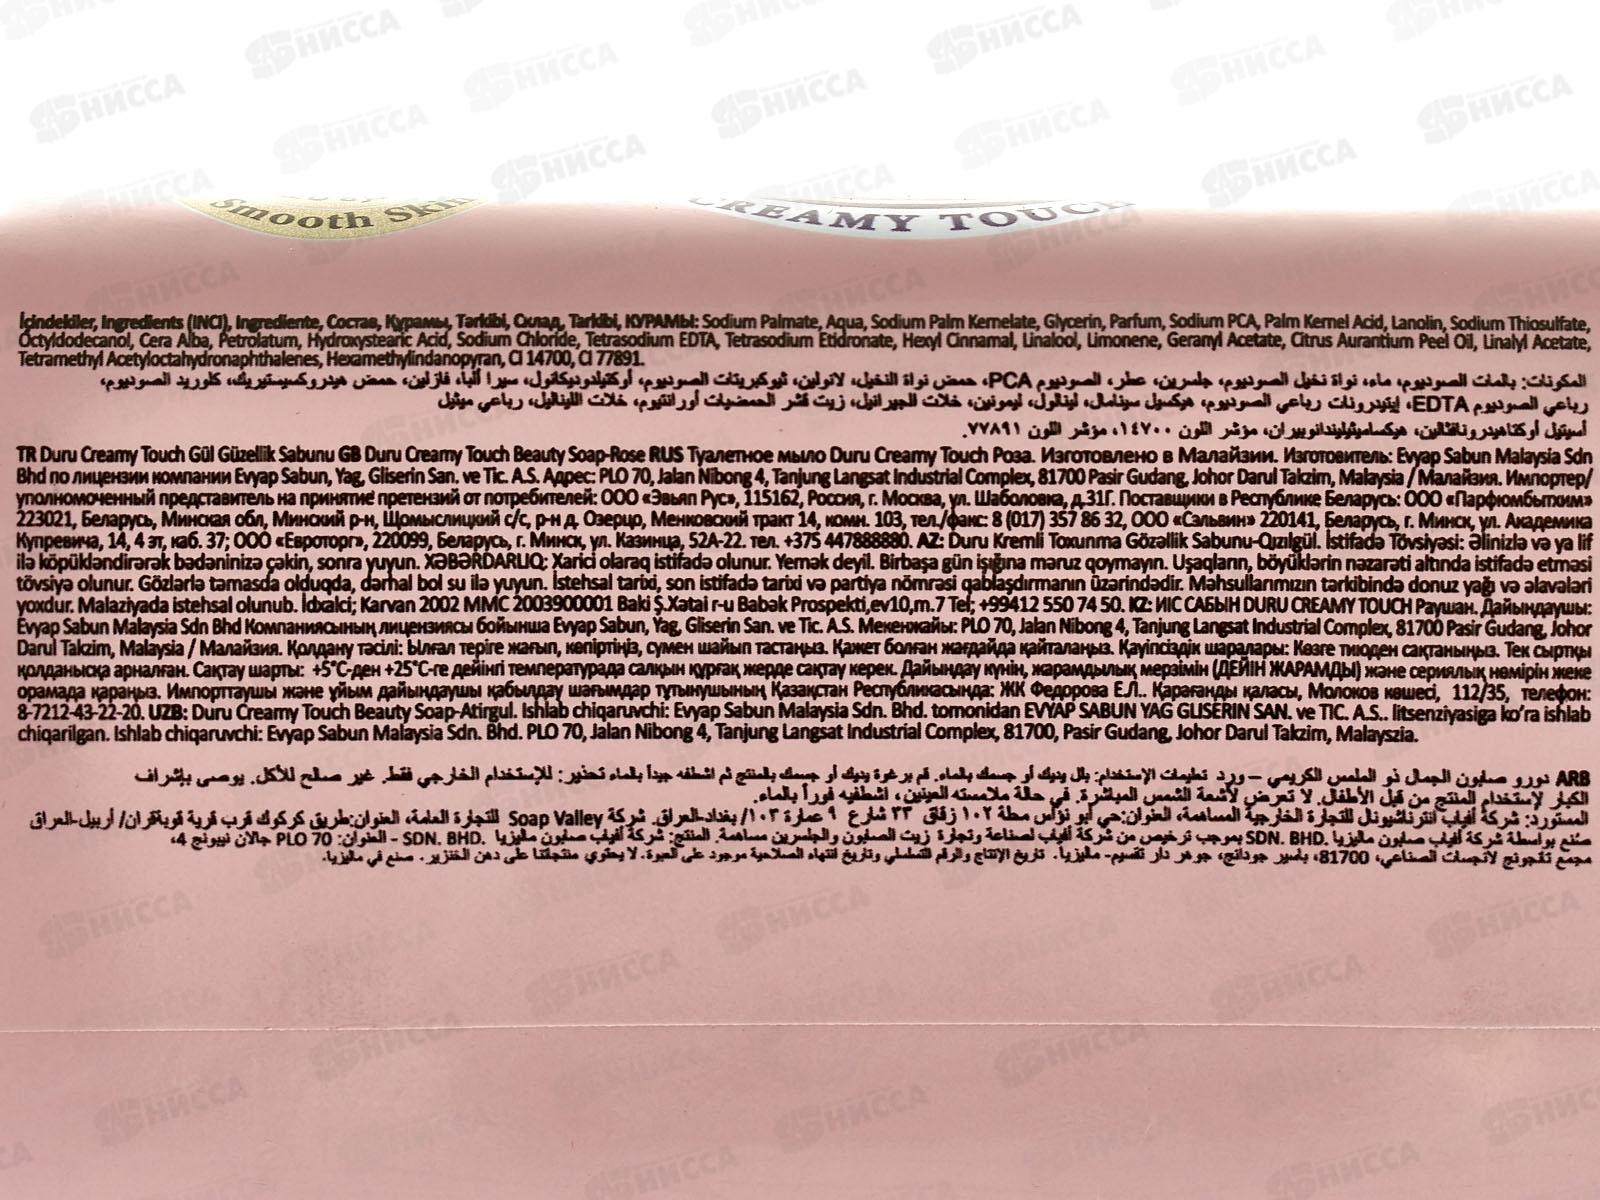 Smooth Skin
CREAMY TOUCH
İçindekiler, Ingredients (INCI), Ingrediente, Состав, Құрамы, Tərkibi, Склад, Tarkibi, КУРАМЫ: Sodium Palmate, Aqua, Sodium Palm Kernelate, Glycerin, Parfum, Sodium PCA, Palm Kernel Acid, Lanolin, Sodium Thiosulfate,
Octyldodecanol, Cera Alba, Petrolatum, Hydroxystearic Acid, Sodium Chloride, Tetrasodium EDTA, Tetrasodium Etidronate, Hexyl Cinnamal, Linalool, Limonene, Geranyl Acetate, Citrus Aurantium Peel Oil, Linalyl Acetate,
Tetramethyl Acetyloctahydronaphthalenes, Hexamethylindanopyran, CI 14700, CI 77891.
المكونات: بالمات الصوديوم، ماء، نواة نخيل الصوديوم، جلسرين، عطر، الصوديوم PCA، حمض نواة النخيل، لانولين، ثيوكبريتات الصوديوم، أوكتيلدوديكانول، سيرا ألبا، فازلين، حمض هيدروكسيستيريك، كلوريد الصوديوم،
رباعي الصوديوم EDTA، إيتيدرونات رباعي الصوديوم، هيكسيل سينامال، لينالول، ليمونين، خلات الجيرانيل، زيت قشر الحمضيات أورانتيوم، خلات الليناليل، رباعي ميثيل
أسيتيل أوكتاهيدرونافثالين، هيكساميثيليندانوبيران، مؤشر اللون ١٤٧٠٠، مؤشر اللون ٧٧٨٩١.
TR Duru Creamy Touch Gül Güzellik Sabunu GB Duru Creamy Touch Beauty Soap-Rose RUS Туалетное мыло Duru Creamy Touch Роза. Изготовлено в Малайзии. Изготовитель: Evyap Sabun Malaysia Sdn
Bhd по лицензии компании Evyap Sabun, Yag, Gliserin San. ve Tic. A.S. Адрес: PLO 70, Jalan Nibong 4, Tanjung Langsat Industrial Complex, 81700 Pasir Gudang, Johor Darul Takzim, Malaysia / Малайзия. Импортер/
уполномоченный представитель на принятие претензий от потребителей: ООО «Эвьяп Рус», 115162, Россия, г. Москва, ул. Шаболовка, д.31Г. Поставщики в Республике Беларусь: ООО «Парфюмбытхим»
223021, Беларусь, Минская обл, Минский р-н, Щомыслицкий с/с, р-н д. Озерцо, Менковский тракт 14, комн. 103, тел./факс: 8 (017) 357 86 32, ООО «Сэльвин» 220141, Беларусь, г. Минск, ул. Академика
Купревича, 14, 4 эт, каб. 37; ООО «Евроторг», 220099, Беларусь, г. Минск, ул. Казинца, 52А-22. тел. +375 447888880. AZ: Duru Kremli Toxunma Gözəllik Sabunu-Qızılgül. İstifadə Tövsiyəsi: Əlinizlə və ya lif
ilə köpükləndirərək bədəninizə çəkin, sonra yuyun. XƏBƏRDARLIQ: Xarici olaraq istifadə olunur. Yemək deyil. Birbaşa gün işığına məruz qoymayın. Uşaqların, böyüklərin nəzarəti altında istifadə etməsi
tövsiyə olunur. Gözlərlə təmasda olduqda, dərhal bol su ilə yuyun. İstehsal tarixi, son istifadə tarixi və partiya nömrəsi qablaşdırmanın üzərindədir. Məhsullarımızın tərkibində donuz yağı və əlavələri
yoxdur. Malaziyada istehsal olunub. İdxalci; Karvan 2002 MMC 2003900001 Baki Ş.Xətai r-u Babək Prospekti,ev10,m.7 Tel; +99412 550 74 50. KZ: ИІС САБЫН DURU CREAMY TOUCH Раушан. Дайындаушы:
Evyap Sabun Malaysia Sdn Bhd Компаниясының лицензиясы бойынша Evyap Sabun, Yag, Gliserin San. ve Tic. A.S. Мекенжайы: PLO 70, Jalan Nibong 4, Tanjung Langsat Industrial Complex, 81700 Pasir Gudang, Johor
Darul Takzim, Malaysia / Малайзия. Қолдану тәсілі: Ылғал теріге жағып, көпіртіңіз, сумен шайып тастаңыз. Қажет болған жағдайда қайталаңыз. Қауіпсіздік шаралары: Көзге тиюден сақтаныңыз. Тек сыртқы
қолданысқа арналған. Сақтау шарты: +5°С-ден +25°С-ге дейінгі температурада салқын құрғақ жерде сақтау керек. Дайындау күнін, жарамдылық мерзімін (ДЕЙІН ЖАРАМДЫ) және сериялық нөмірін жеке
орамада қараңыз. Импорттаушы және ұйым дайындаушы қабылдау шағымдар тұтынушының Қазақстан Республикасында: ЖК Федорова Е.Л.. Қарағанды қаласы, Молоков көшесі, 112/35, телефон:
8-7212-43-22-20. UZB: Duru Creamy Touch Beauty Soap-Atirgul. Ishlab chiqaruvchi: Evyap Sabun Malaysia Sdn. Bhd. tomonidan EVYAP SABUN YAG GLISERIN SAN. ve TIC. A.S.. litsenziyasiga ko'ra ishlab
chiqarilgan. Ishlab chiqaruvchi: Evyap Sabun Malaysia Sdn. Bhd. PLO 70, Jalan Nibong 4, Tanjung Langsat Industrial Complex, 81700, Pasir Gudang, Johor Darul Takzim, Malayszia.
ARB دورو صابون الجمال ذو الملمس الكريمي – ورد تعليمات الإستخدام: بلل يديك أو جسمك بالماء. قم برغوة يديك أو جسمك بالمنتج ثم اشطفه جيداً بالماء تحذير: للإستخدام الخارجي فقط. غير صالح للأكل. يوصى بإشراف
الكبار لإستخدام المنتج من قبل الأطفال. لا تعرض لأشعة الشمس المباشرة. في حالة ملامسته العينين، اشطفيه فوراً بالماء.
المستورد: شركة أفياب انترناشيونال للتجارة الخارجية المساهمة، العنوان:حي أبو نؤاس محلة ١٠٢ زقاق ٣٣ شارع ٩ عمارة ١٠٣/ بغداد-العراق. شركة Soap Valley للتجارة العامة، العنوان:طريق كركوك قرب قرية قويةقران/ أربيل-العراق
صُنع بواسطة شركة أفياب صابون ماليزيا SDN. BHD. بموجب ترخيص من شركة أفياب لصناعة وتجارة زيت الصابون والجلسرين مساهمة. المنتج: شركة أفياب صابون ماليزيا SDN. BHD. - العنوان: PLO 70 جالان نيبونج 4،
مجمع تانجونج لانجسات الصناعي، 81700، باسير جودانج، جوهر دار تقسيم- ماليزيا. تاريخ الإنتاج والرقم التسلسلي وتاريخ انتهاء الصلاحية موجود على العبوة. لا يحتوي منتجاتنا على دهن الخنزير. صنع في ماليزيا.